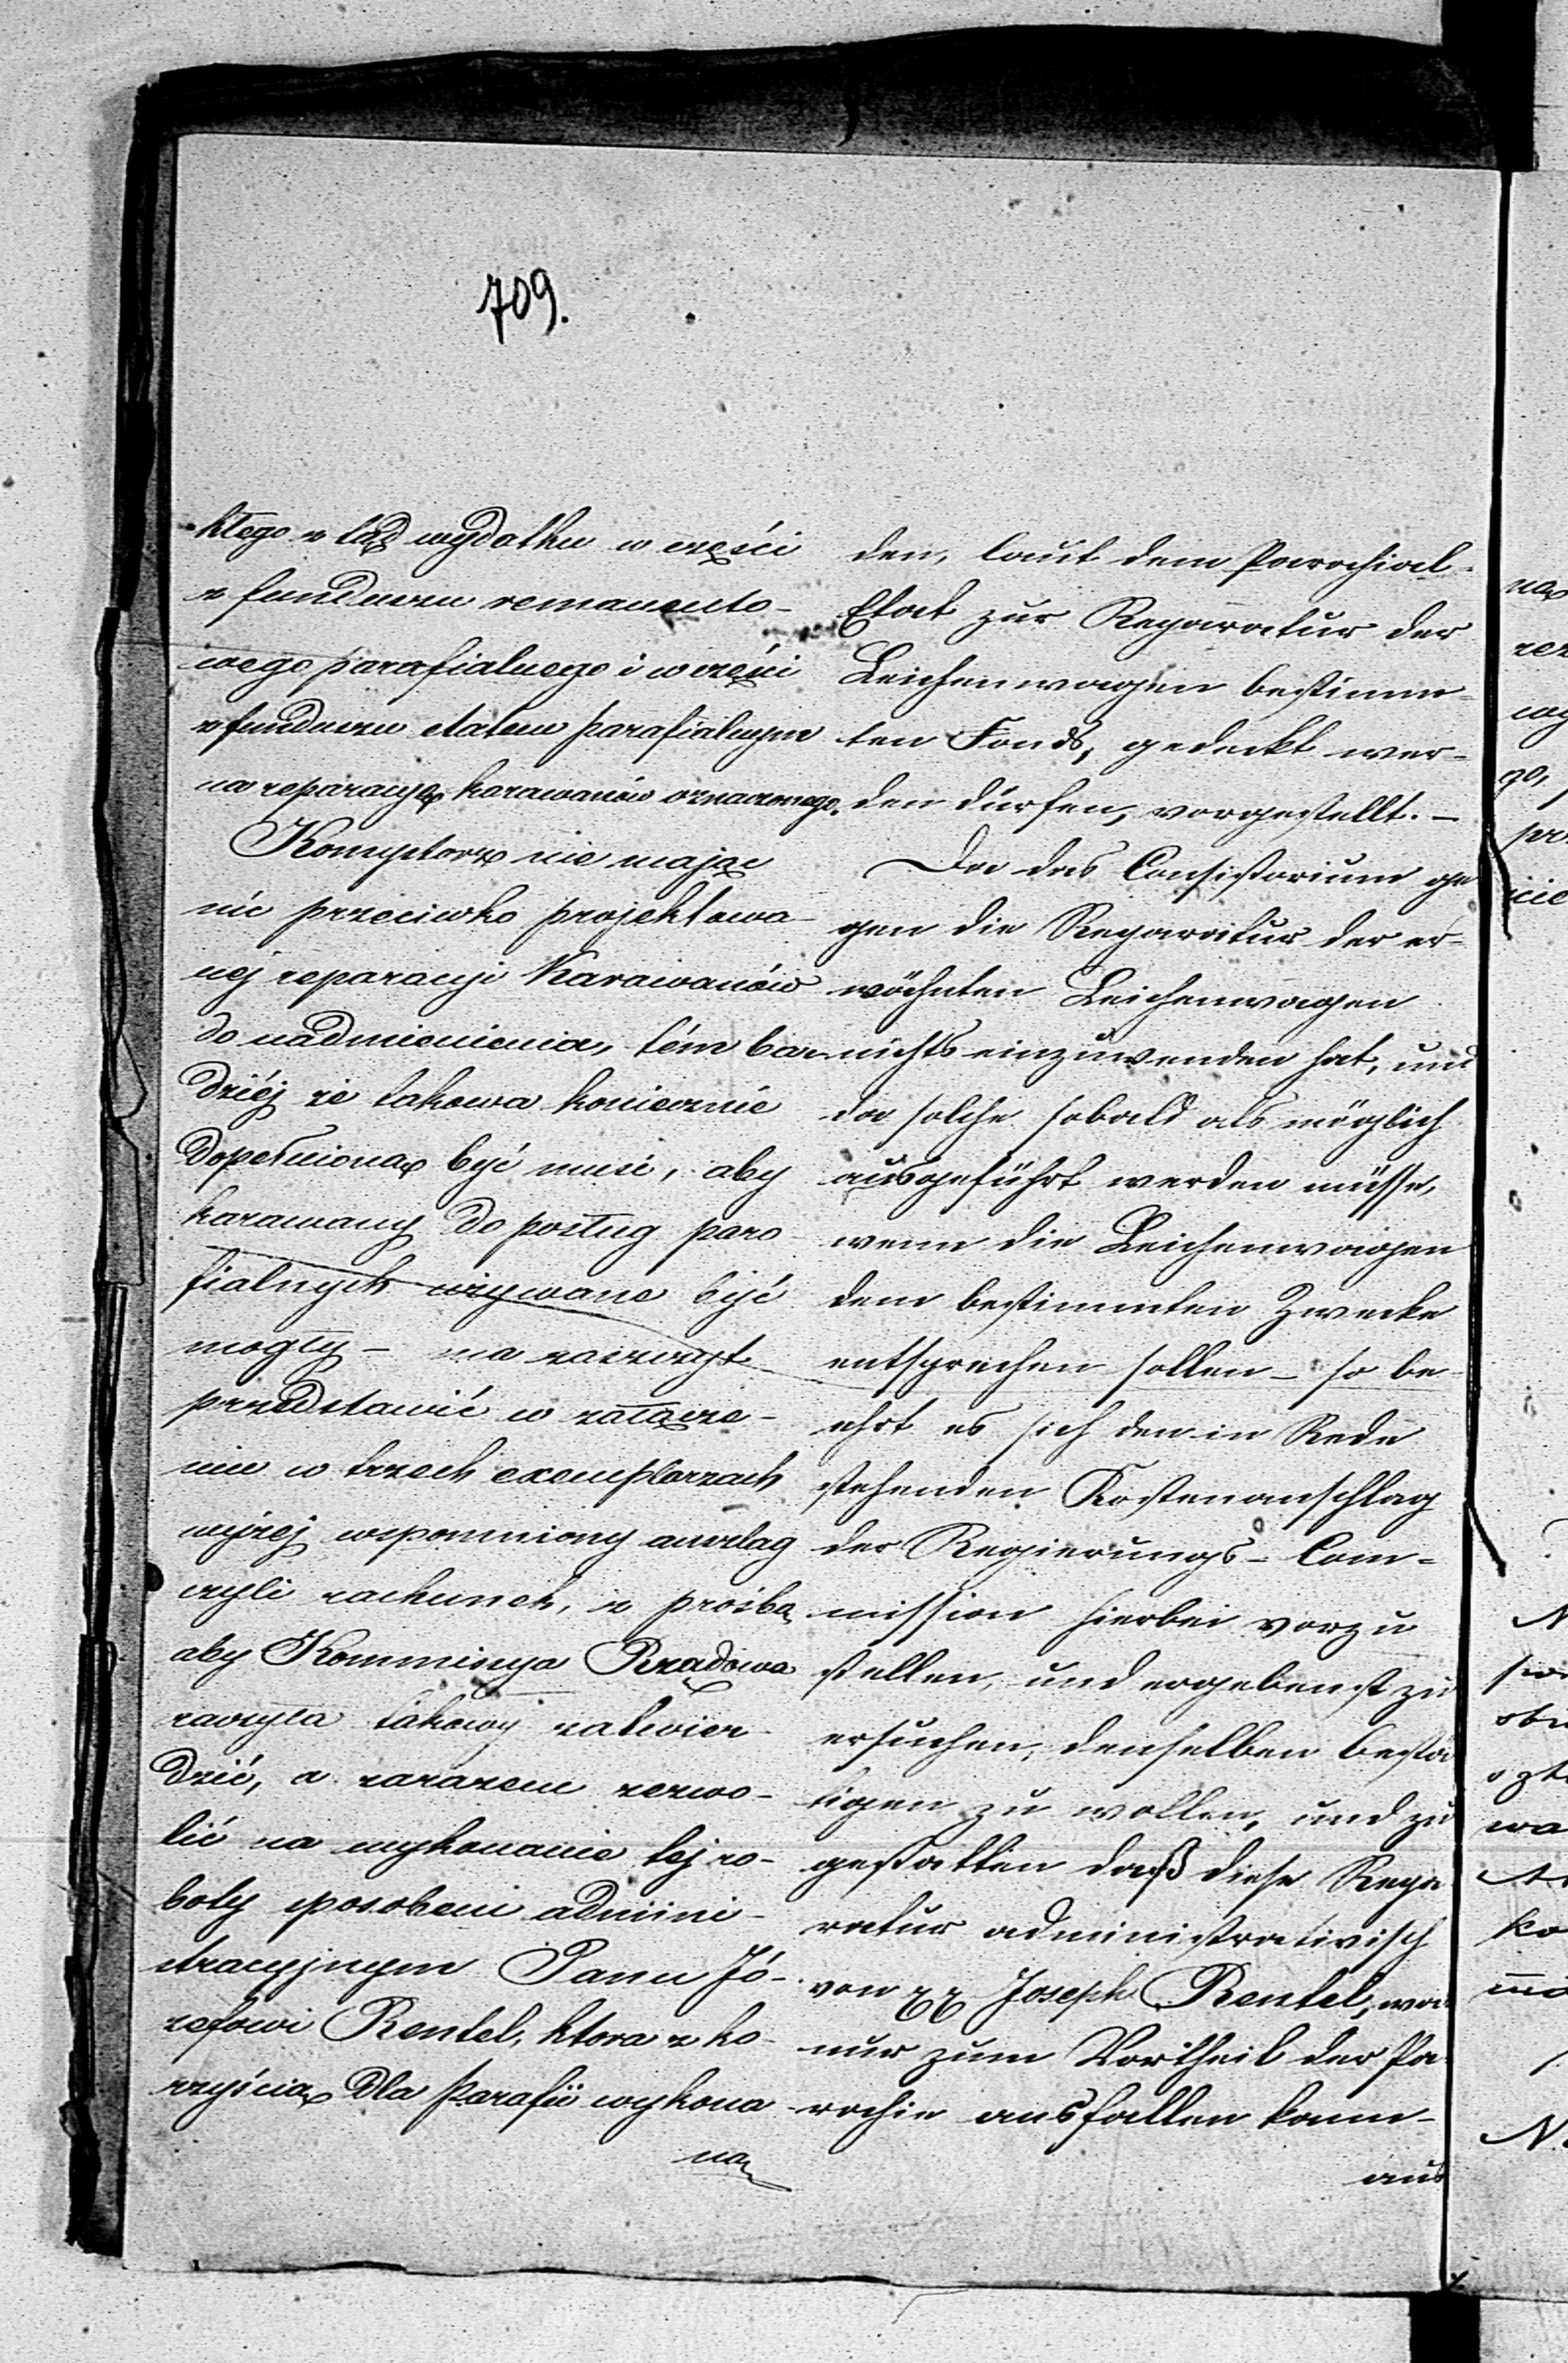 709.
kłego z tąd wydatku w części
z funduszu remanento-
wego parafialnego i w części
z funduszu etatem parafialnym
na reparacyę karawanów oznaczonego.
Konsystorz nie mając
nic przeciwko projektowa-
nej reparacyi Karawanów
do nadmienienia, tém bar-
dziéj że takowa koniecznie
dopełnioną być musi, aby
karawany do posług para-
fialnych używane być
mogły – ma zaszczyt
przedstawić w załącze-
niu w trzech exemplarzach
wyżej wspomniony anszlag
czyli rachunek, z prośbą
aby Kommisyja Rządowa
raczyła takowy zatwier-
dzić, a zarazem zezwo-
lić na wykonanie tej ro-
boty sposobem admini-
stracyjnym Panu Jó-
zefowi Rentel, która z ko-
rzyścią dla Parafii wykona-
ną
den, laut dem Parochial-
Etat zur Reparatur der
Leichenwagen bestimm-
ten Fonds, gedeckt wer-
den dürfen, vorgestellt. –
Da das Consistorium ge-
gen die Reparatur der er-
wähnten Leichenwagen
nichts einzuwenden hat, und
da solche sobald als möglich
ausgeführt werden müsse,
wenn die Leichenwagen
dem bestimmten Zwecke
entsprechen sollen – so be-
ehrt es sich den in Rede
stehenden Kostenanschlag
der Regierungs-Com-
mission hierbei vorzu
stellen, und ergebenst zu
ersuchen, denselben bestä
tigen zu wollen, und zu
gestatten daß diese Repa
ratur administrativisch
von Joseph Rentel, was
nur zum Vortheil der Pa
rochie ausfallen kann –
aus